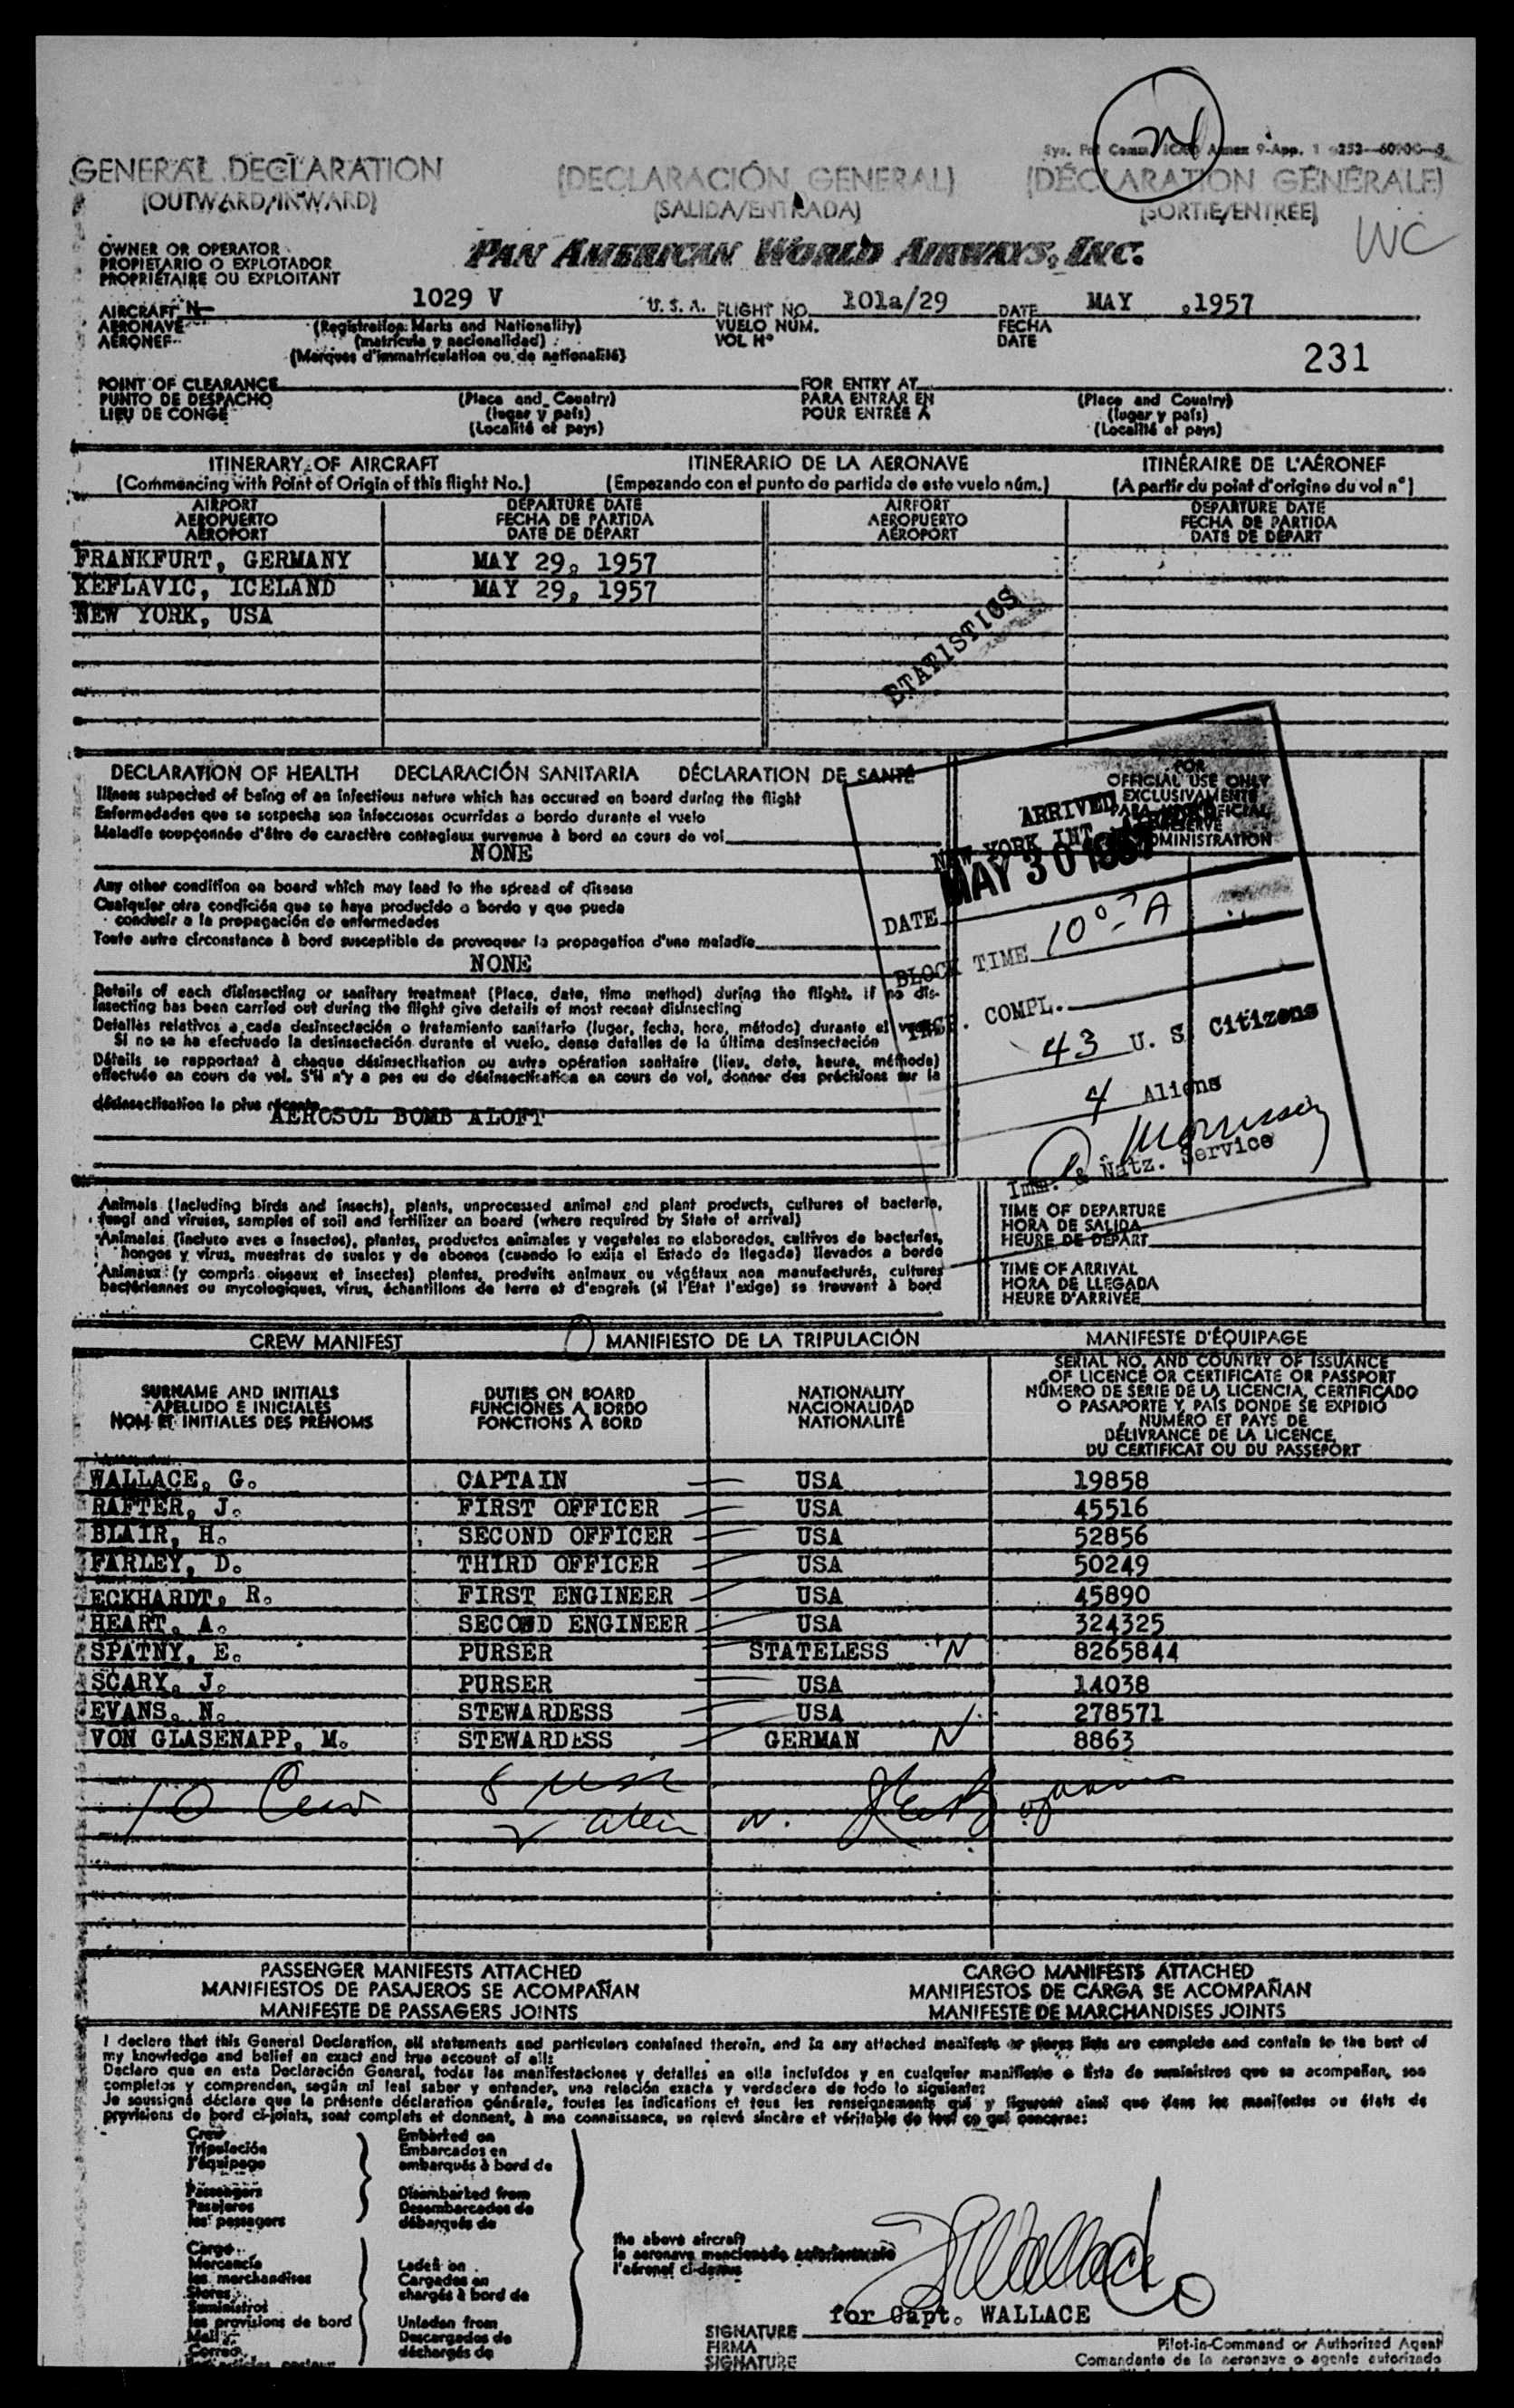 Sys. For Comm. ICAO Annex 9-App. 1
GENERAL DECLARATION (DECLARACIÓN GENERAL) (DÉCLARATION GÉNÉRALE)
(OUTWARD/INWARD) (SALIDA/ENTRADA) (SORTIE/ENTRÉE)
WC
OWNER OR OPERATOR
PROPIETARIO O EXPLOTADOR
PROPRIÉTAIRE OU EXPLOITANT
PAN AMERICAN WORLD AIRWAYS, INC.
AIRCRAFT N 1029 V U. S. A. FLIGHT NO. 101a/29 DATE MAY ,1957
AERONAVE (Registration Marks and Nationality) VUELO NÚM. FECHA
AÉRONEF (matrícula y nacionalidad) VOL Nº DATE
(Marques d'immatriculation ou de nationalité)
231
POINT OF CLEARANCE FOR ENTRY AT
PUNTO DE DESPACHO (Place and Country) PARA ENTRAR EN (Place and Country)
LIEU DE CONGÉ (lugar y país) POUR ENTRÉE À (lugar y país)
(Localité et pays) (Localité et pays)
ITINERARY OF AIRCRAFT ITINERARIO DE LA AERONAVE ITINÉRAIRE DE L'AÉRONEF
(Commencing with Point of Origin of this flight No.) (Empezando con el punto de partida de este vuelo núm.) (A partir du point d'origine du vol nº)
AIRPORT DEPARTURE DATE AIRPORT DEPARTURE DATE
AEROPUERTO FECHA DE PARTIDA AEROPUERTO FECHA DE PARTIDA
AÉROPORT DATE DE DÉPART AÉROPORT DATE DE DÉPART
FRANKFURT, GERMANY MAY 29, 1957
KEFLAVIC, ICELAND MAY 29, 1957
NEW YORK, USA
STATISTICS
DECLARATION OF HEALTH DECLARACIÓN SANITARIA DÉCLARATION DE SANTÉ
Illness suspected of being of an infectious nature which has occured on board during the flight
Enfermedades que se sospecha son infecciosas ocurridas a bordo durante el vuelo
Maladie soupçonnée d'être de caractère contagieux survenue à bord en cours de vol
NONE
Any other condition on board which may lead to the spread of disease
Cualquier otra condición que se haya producido a bordo y que pueda
conducir a la propagación de enfermedades
Toute autre circonstance à bord susceptible de provoquer la propagation d'une maladie
NONE
Details of each disinsecting or sanitary treatment (Place, date, time method) during the flight. If no dis-
insecting has been carried out during the flight give details of most recent disinsecting
Detalles relativos a cada desinsectación o tratamiento sanitario (lugar, fecha, hora, método) durante el vuelo.
Si no se ha efectuado la desinsectación durante el vuelo, dense detalles de la última desinsectación
Détails se rapportant à chaque désinsectisation ou autre opération sanitaire (lieu, date, heure, méthode)
effectuée en cours de vol. S'il n'y a pas eu de désinsectisation en cours de vol, donner des précisions sur la
désinsectisation la plus récente
AEROSOL BOMB ALOFT
FOR
OFFICIAL USE ONLY
EXCLUSIVAMENTE
PARA USO OFICIAL
RESERVE
ADMINISTRATION
ARRIVED
NEW YORK INT.
DATE MAY 30 1957
BLOCK TIME 10 07 A
INSP. COMPL.
43 U. S. Citizens
4 Aliens
Imm. & Natz. Service
Animals (including birds and insects), plants, unprocessed animal and plant products, cultures of bacteria,
fungi and viruses, samples of soil and fertilizer on board (where required by State of arrival)
Animales (incluso aves e insectos), plantas, productos animales y vegetales no elaborados, cultivos de bacterias,
hongos y virus, muestras de suelos y de abonos (cuando lo exija el Estado de llegada) llevados a bordo
Animaux (y compris oiseaux et insectes) plantes, produits animaux ou végétaux non manufacturés, cultures
bactériennes ou mycologiques, virus, échantillons de terre et d'engrais (si l'Etat l'exige) se trouvant à bord
TIME OF DEPARTURE
HORA DE SALIDA
HEURE DE DÉPART
TIME OF ARRIVAL
HORA DE LLEGADA
HEURE D'ARRIVÉE
CREW MANIFEST MANIFIESTO DE LA TRIPULACIÓN MANIFESTE D'ÉQUIPAGE
SURNAME AND INITIALS
APELLIDO E INICIALES
NOM ET INITIALES DES PRÉNOMS
DUTIES ON BOARD
FUNCIONES A BORDO
FONCTIONS À BORD
NATIONALITY
NACIONALIDAD
NATIONALITÉ
SERIAL NO. AND COUNTRY OF ISSUANCE
OF LICENCE OR CERTIFICATE OR PASSPORT
NÚMERO DE SERIE DE LA LICENCIA, CERTIFICADO
O PASAPORTE Y PAÍS DONDE SE EXPIDIÓ
NUMÉRO ET PAYS DE
DÉLIVRANCE DE LA LICENCE,
DU CERTIFICAT OU DU PASSEPORT
WALLACE, G. CAPTAIN USA 19858
RAFTER, J. FIRST OFFICER USA 45516
BLAIR, H. SECOND OFFICER USA 52856
FARLEY, D. THIRD OFFICER USA 50249
ECKHARDT, R. FIRST ENGINEER USA 45890
HEART, A. SECOND ENGINEER USA 324325
SPATNY, E. PURSER STATELESS N 8265844
SCARY, J. PURSER USA 14038
EVANS, N. STEWARDESS USA 278571
VON GLASENAPP, M. STEWARDESS GERMAN N 8863
10 Crew 8 USA
2 alien
PASSENGER MANIFESTS ATTACHED CARGO MANIFESTS ATTACHED
MANIFIESTOS DE PASAJEROS SE ACOMPAÑAN MANIFIESTOS DE CARGA SE ACOMPAÑAN
MANIFESTE DE PASSAGERS JOINTS MANIFESTE DE MARCHANDISES JOINTS
I declare that this General Declaration, all statements and particulars contained therein, and in any attached manifests or stores lists are complete and contain to the best of
my knowledge and belief an exact and true account of all:
Declaro que en esta Declaración General, todas las manifestaciones y detalles en ella incluídos y en cualquier manifiesto o lista de suministros que se acompañan, son
completos y comprenden, según mi leal saber y entender, una relación exacta y verdadera de todo lo siguiente:
Je soussigné déclare que la présente déclaration générale, toutes les indications et tous les renseignements qui y figurent ainsi que dans les manifestes ou états de
provisions de bord ci-joints, sont complets et donnent, à ma connaissance, un relevé sincère et véritable de tout ce qui concerne:
Crew
Tripulación
l'équipage
Passengers
Pasajeros
les passagers
Embarked on
Embarcados en
embarqués à bord de
Disembarked from
Desembarcados de
débarqués de
Cargo
Mercancía
les marchandises
Stores
Suministros
les provisions de bord
Mail
Correo
Laden on
Cargados en
chargés à bord de
Unladen from
Descargados de
déchargés de
the above aircraft
la aeronave mencionada anteriormente
l'aéronef ci-dessus
for Capt. WALLACE
SIGNATURE
FIRMA
SIGNATURE
Pilot-in-Command or Authorized Agent
Comandante de la aeronave o agente autorizado